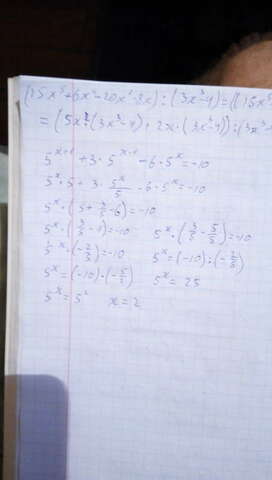 (15x⁵+6x⁴-20x²-8x):(3x³-4)=((15x⁵
=(5x²·(3x³-4)+2x·(3x³-4)):(3x³-4
5ˣ⁺¹+3·5ˣ⁻¹-6·5ˣ=-10
5ˣ·5+3·5ˣ/5-6·5ˣ=-10
5ˣ·(5+3/5-6)=-10
5ˣ·(3/5-1)=-10 5ˣ·(3/5-5/5)=-10
5ˣ·(-2/5)=-10 5ˣ=(-10):(-2/5)
5ˣ=(-10)·(-5/2) 5ˣ=25
5ˣ=5² x=2